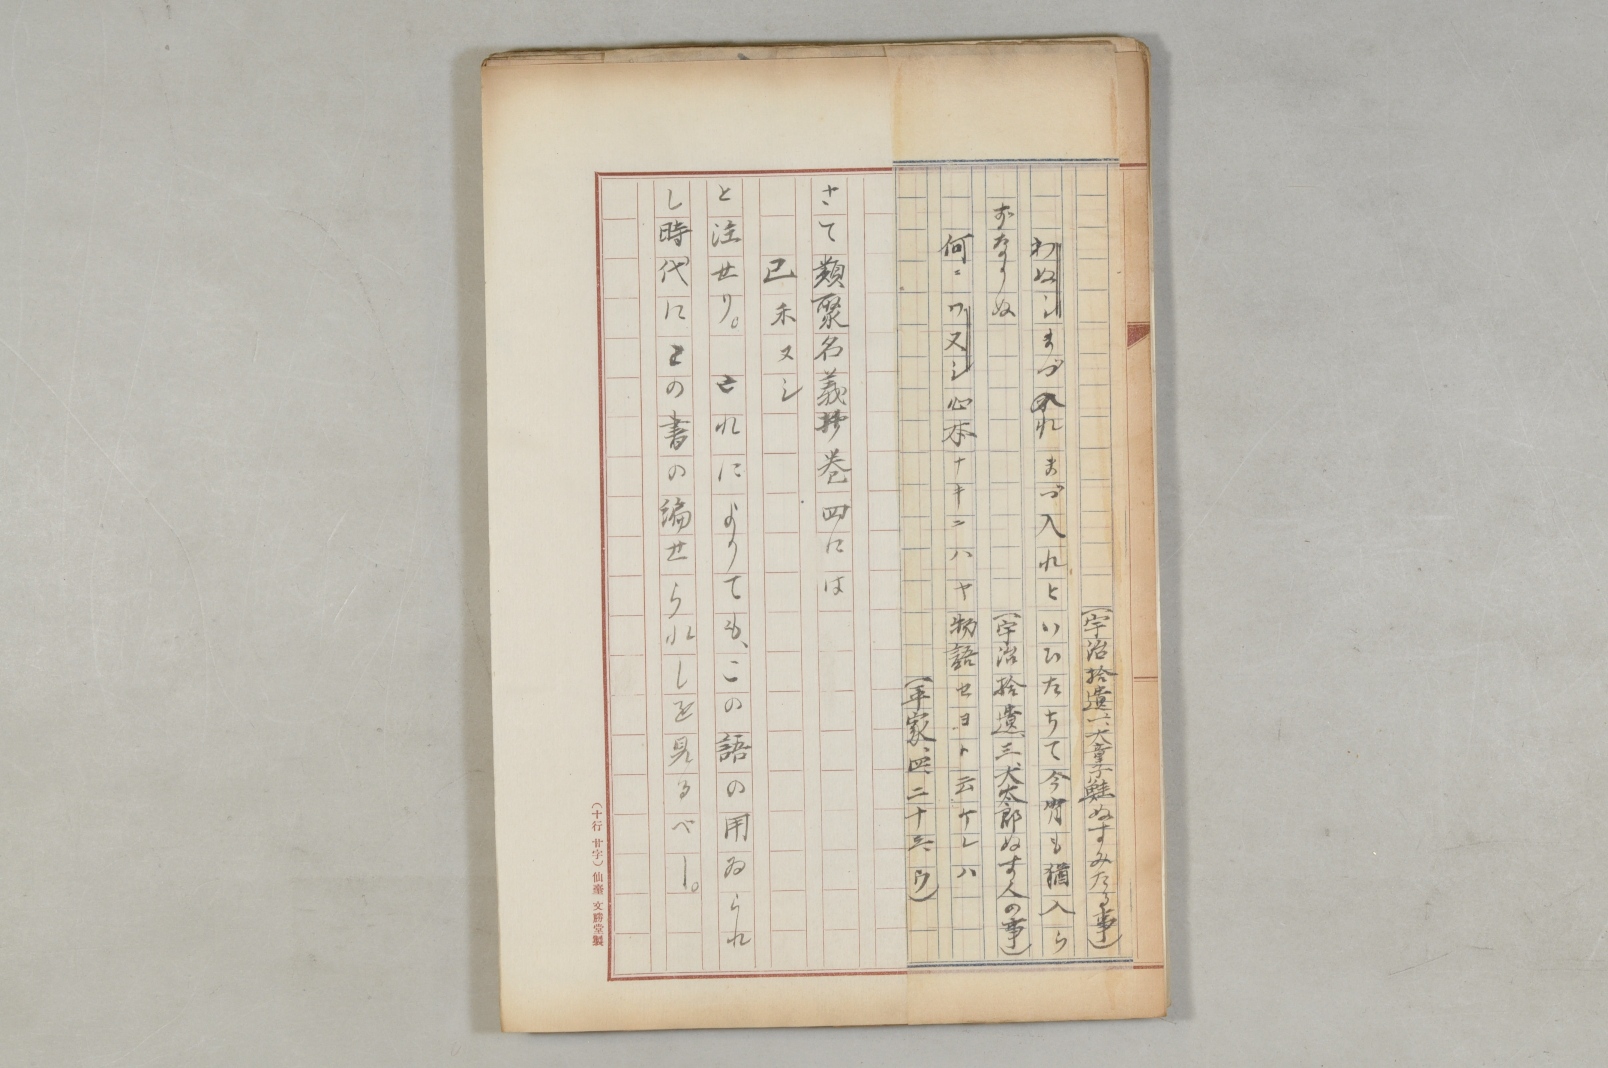 (宇治拾遺一、大童子鮭ぬすみたる事)
わぬしまづ入れまづ入れといひたちて今宵も猶入ら
(宇治拾遺三、犬太郎ぬす人の事)
何ニワヌシ心本ナキニハヤ物語セヨト云ケレハ
(平家、四、二十六ウ)
さて類聚名義抄巻四には
已禾ヌシ
と注せり。これによりても、この語の用ゐられ
し時代にこの書の編せられしを見るべし。
(十行 廿字) 仙臺 文勝堂製